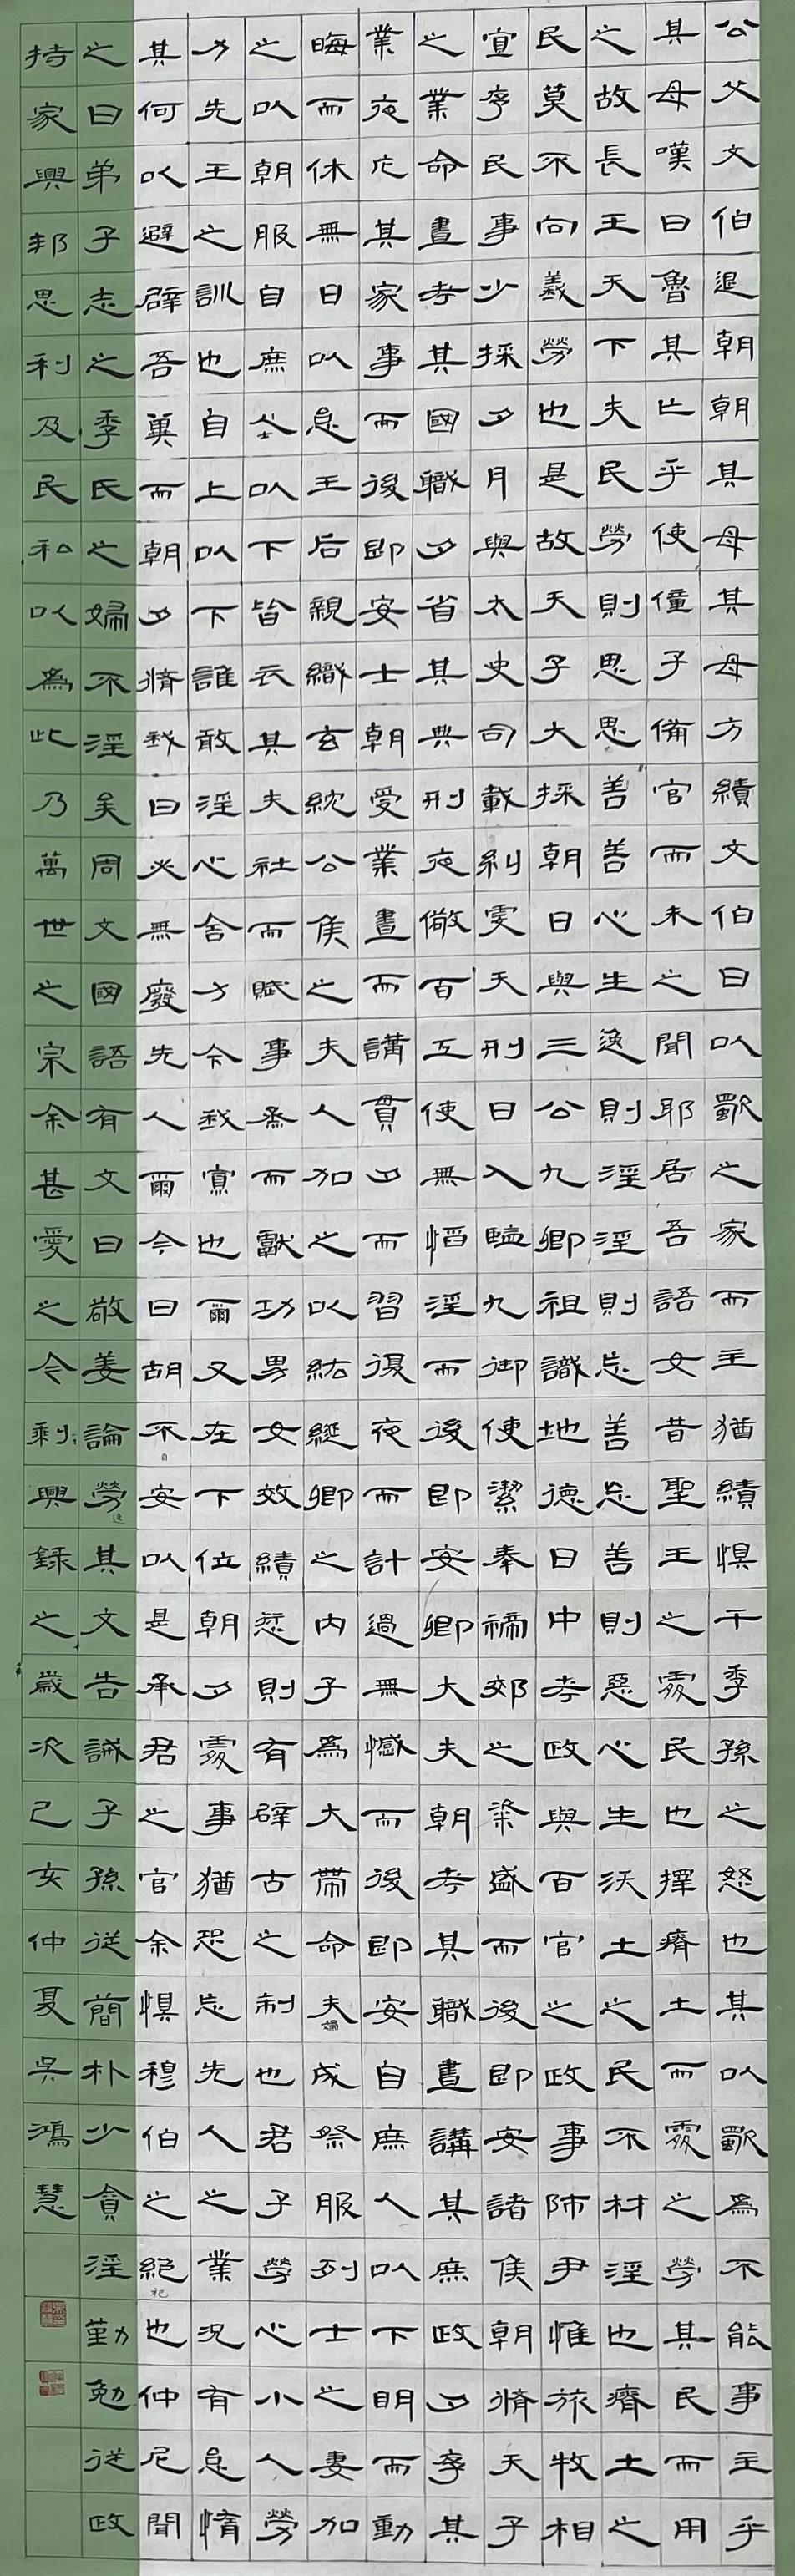 公父文伯退朝朝其母其母方績文伯曰以歜之家而主猶績懼干季孫之怒也其以歜為不能事主乎
其母嘆曰魯其亡乎使僮子備官而未之聞耶居吾語女昔聖王之處民也擇瘠土而處之勞其民而用
之故長王天下夫民勞則思思善善心生逸則淫淫則忘善忘善則惡心生沃土之民不材淫也瘠土之
民莫不向義勞也是故天子大採朝日與三公九卿祖識地德日中考政與百官之政事師尹惟旅牧相
宣序民事少採夕月與太史司載糾虔天刑日入監九御使潔奉禘郊之粢盛而後即安諸侯朝脩天子
之業命晝考其國職夕省其典刑夜儆百工使無慆淫而後即安卿大夫朝考其職晝講其庶政夕序其
業夜庀其家事而後即安士朝受業晝而講貫夕而習復夜而計過無憾而後即安自庶人以下明而動
晦而休無日以怠王后親織玄紞公侯之夫人加之以紘綖卿之內子為大帶命夫婦成祭服列士之妻加
之以朝服自庶士以下皆衣其夫社而賦事烝而獻功男女效績愆則有辟古之制也君子勞心小人勞
力先王之訓也自上以下誰敢淫心舍力今我寡也爾又在下位朝夕處事猶恐忘先人之業況有怠惰
其何以避辟吾冀而朝夕脩我曰必無廢先人爾今曰胡不自安以是承君之官余懼穆伯之絕祀也仲尼聞
之曰弟子志之季氏之婦不淫矣周文國語有文曰敬姜論勞逸其文告誡子孫從簡朴少貪淫勤勉從政
持家興邦思利及民和以為此乃萬世之宗余甚愛之今剩興錄之歲次己亥仲夏吳鴻慧